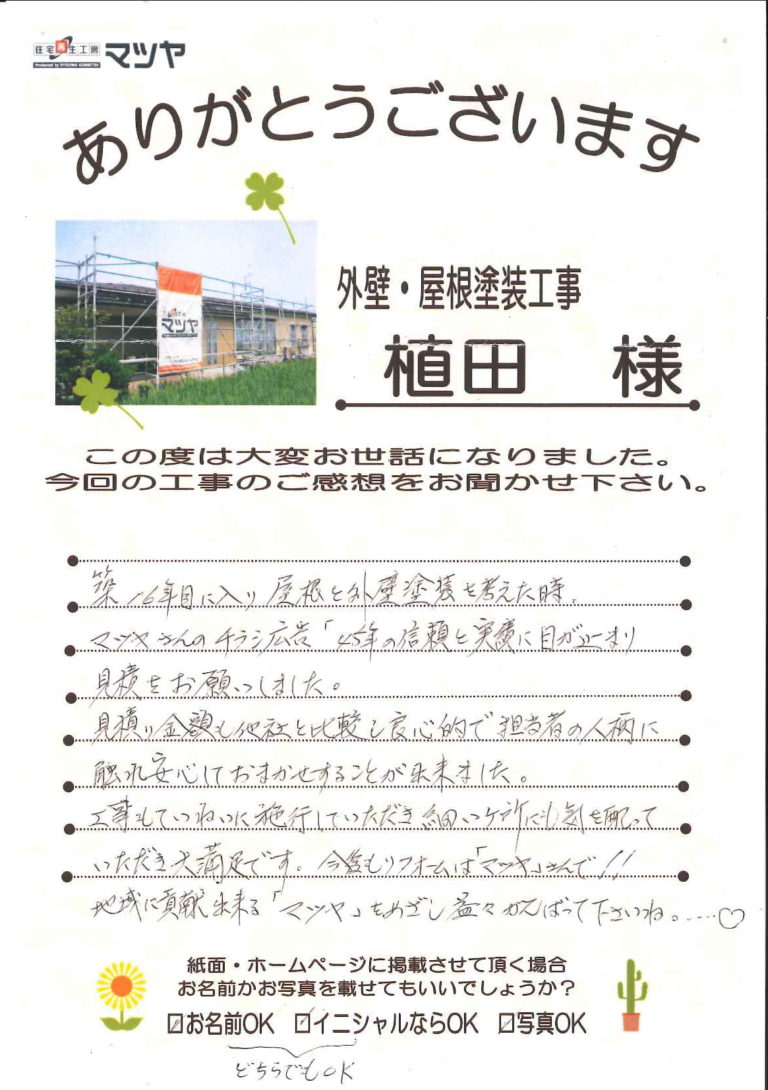 住宅再生工房 マツヤ
ありがとうございます
マツヤ
外壁・屋根塗装工事
植田 様
この度は大変お世話になりました。
今回の工事のご感想をお聞かせ下さい。
築16年目に入り屋根と外壁塗装を考えた時、
マツヤさんのチラシ広告「45年の信頼と実績に目が止まり
見積をお願いしました。
見積り金額も他社と比較し良心的で担当者の人柄に
触れ安心しておまかせすることが出来ました。
工事もていねいに施行していただき細いケ所にも気を配って
いただき大満足です。今後もリフォームは「マツヤ」さんで!!
地域に貢献出来る「マツヤ」をめざし益々がんばって下さいね。.....♡
紙面・ホームページに掲載させて頂く場合
お名前かお写真を載せてもいいでしょうか？
☑お名前OK ☑イニシャルならOK ☑写真OK
どちらでもOK